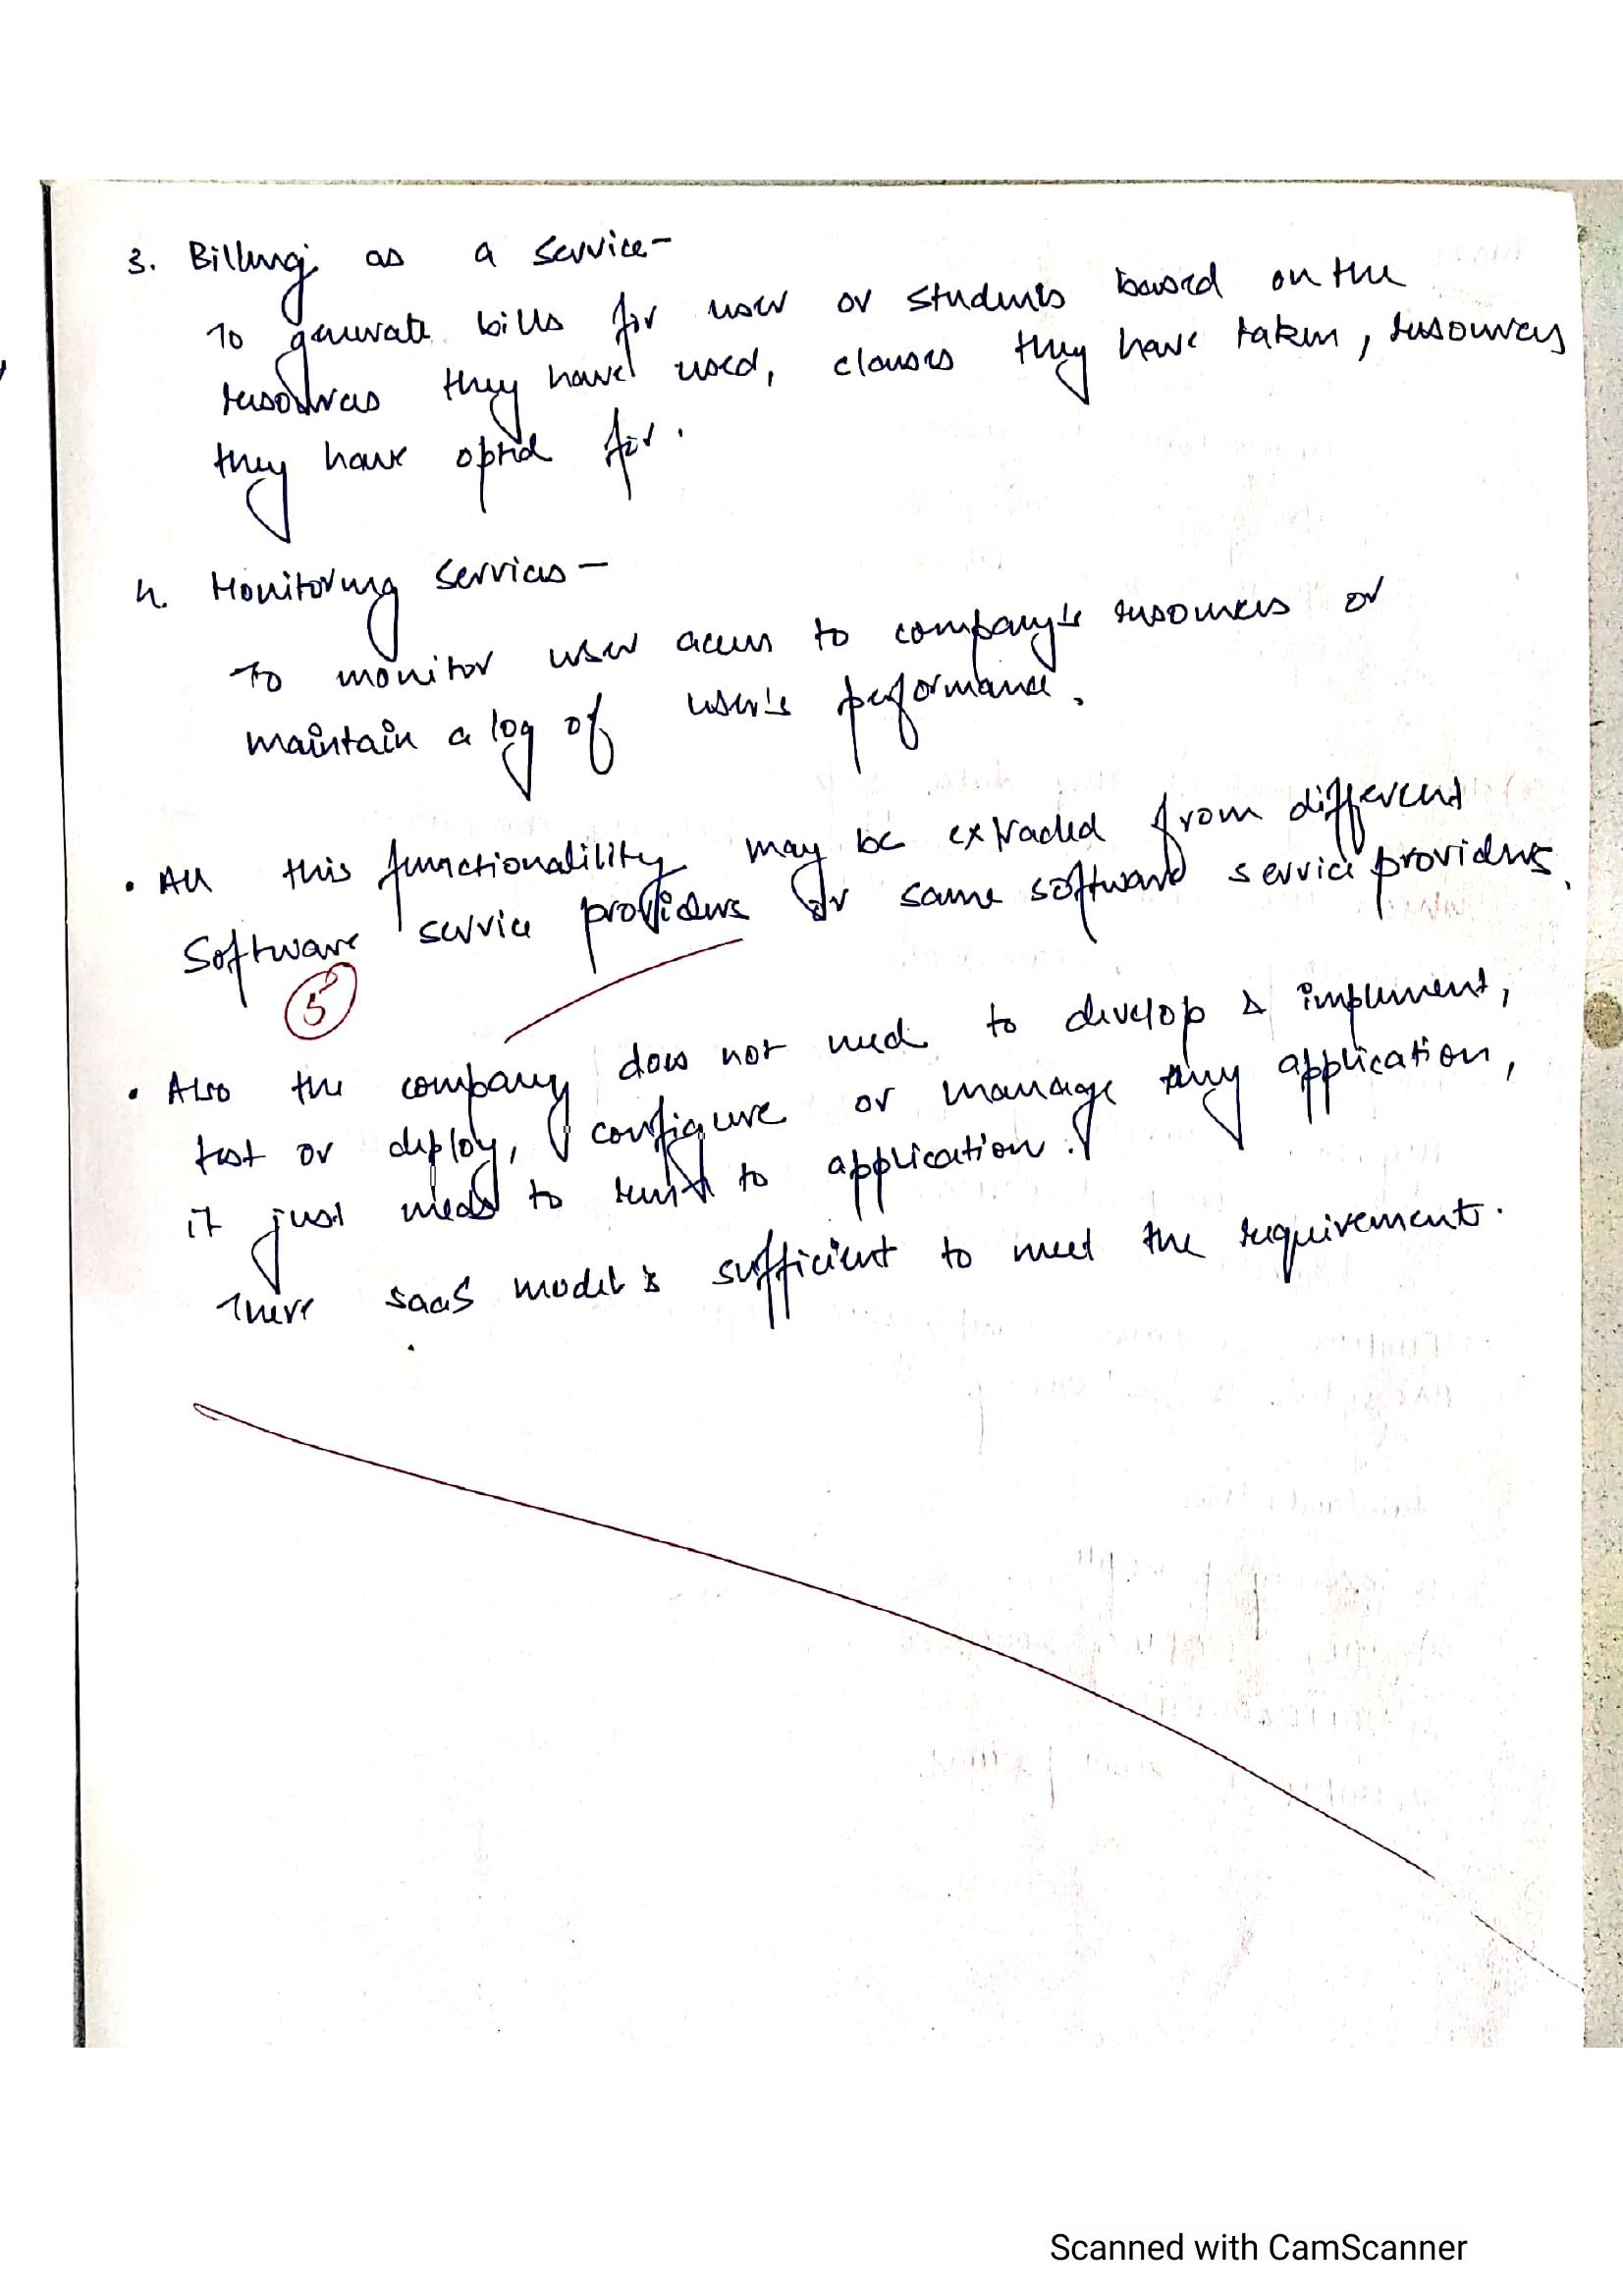 3. Billing as a service-
To generate bills for user or students based on the
resources they have used, classes they have taken, resources
they have opted for.
4. Monitoring services-
To monitor user access to company's resources or
maintain a log of user's performance.
• All this functionalility may be extracted from different
Software service providers or same software service providers.
5
• Also the company does not need to develop & implement,
test or deploy, configure or manage any application,
it just needs to to application.
There SaaS model is sufficient to meet the requirements.
Scanned with CamScanner